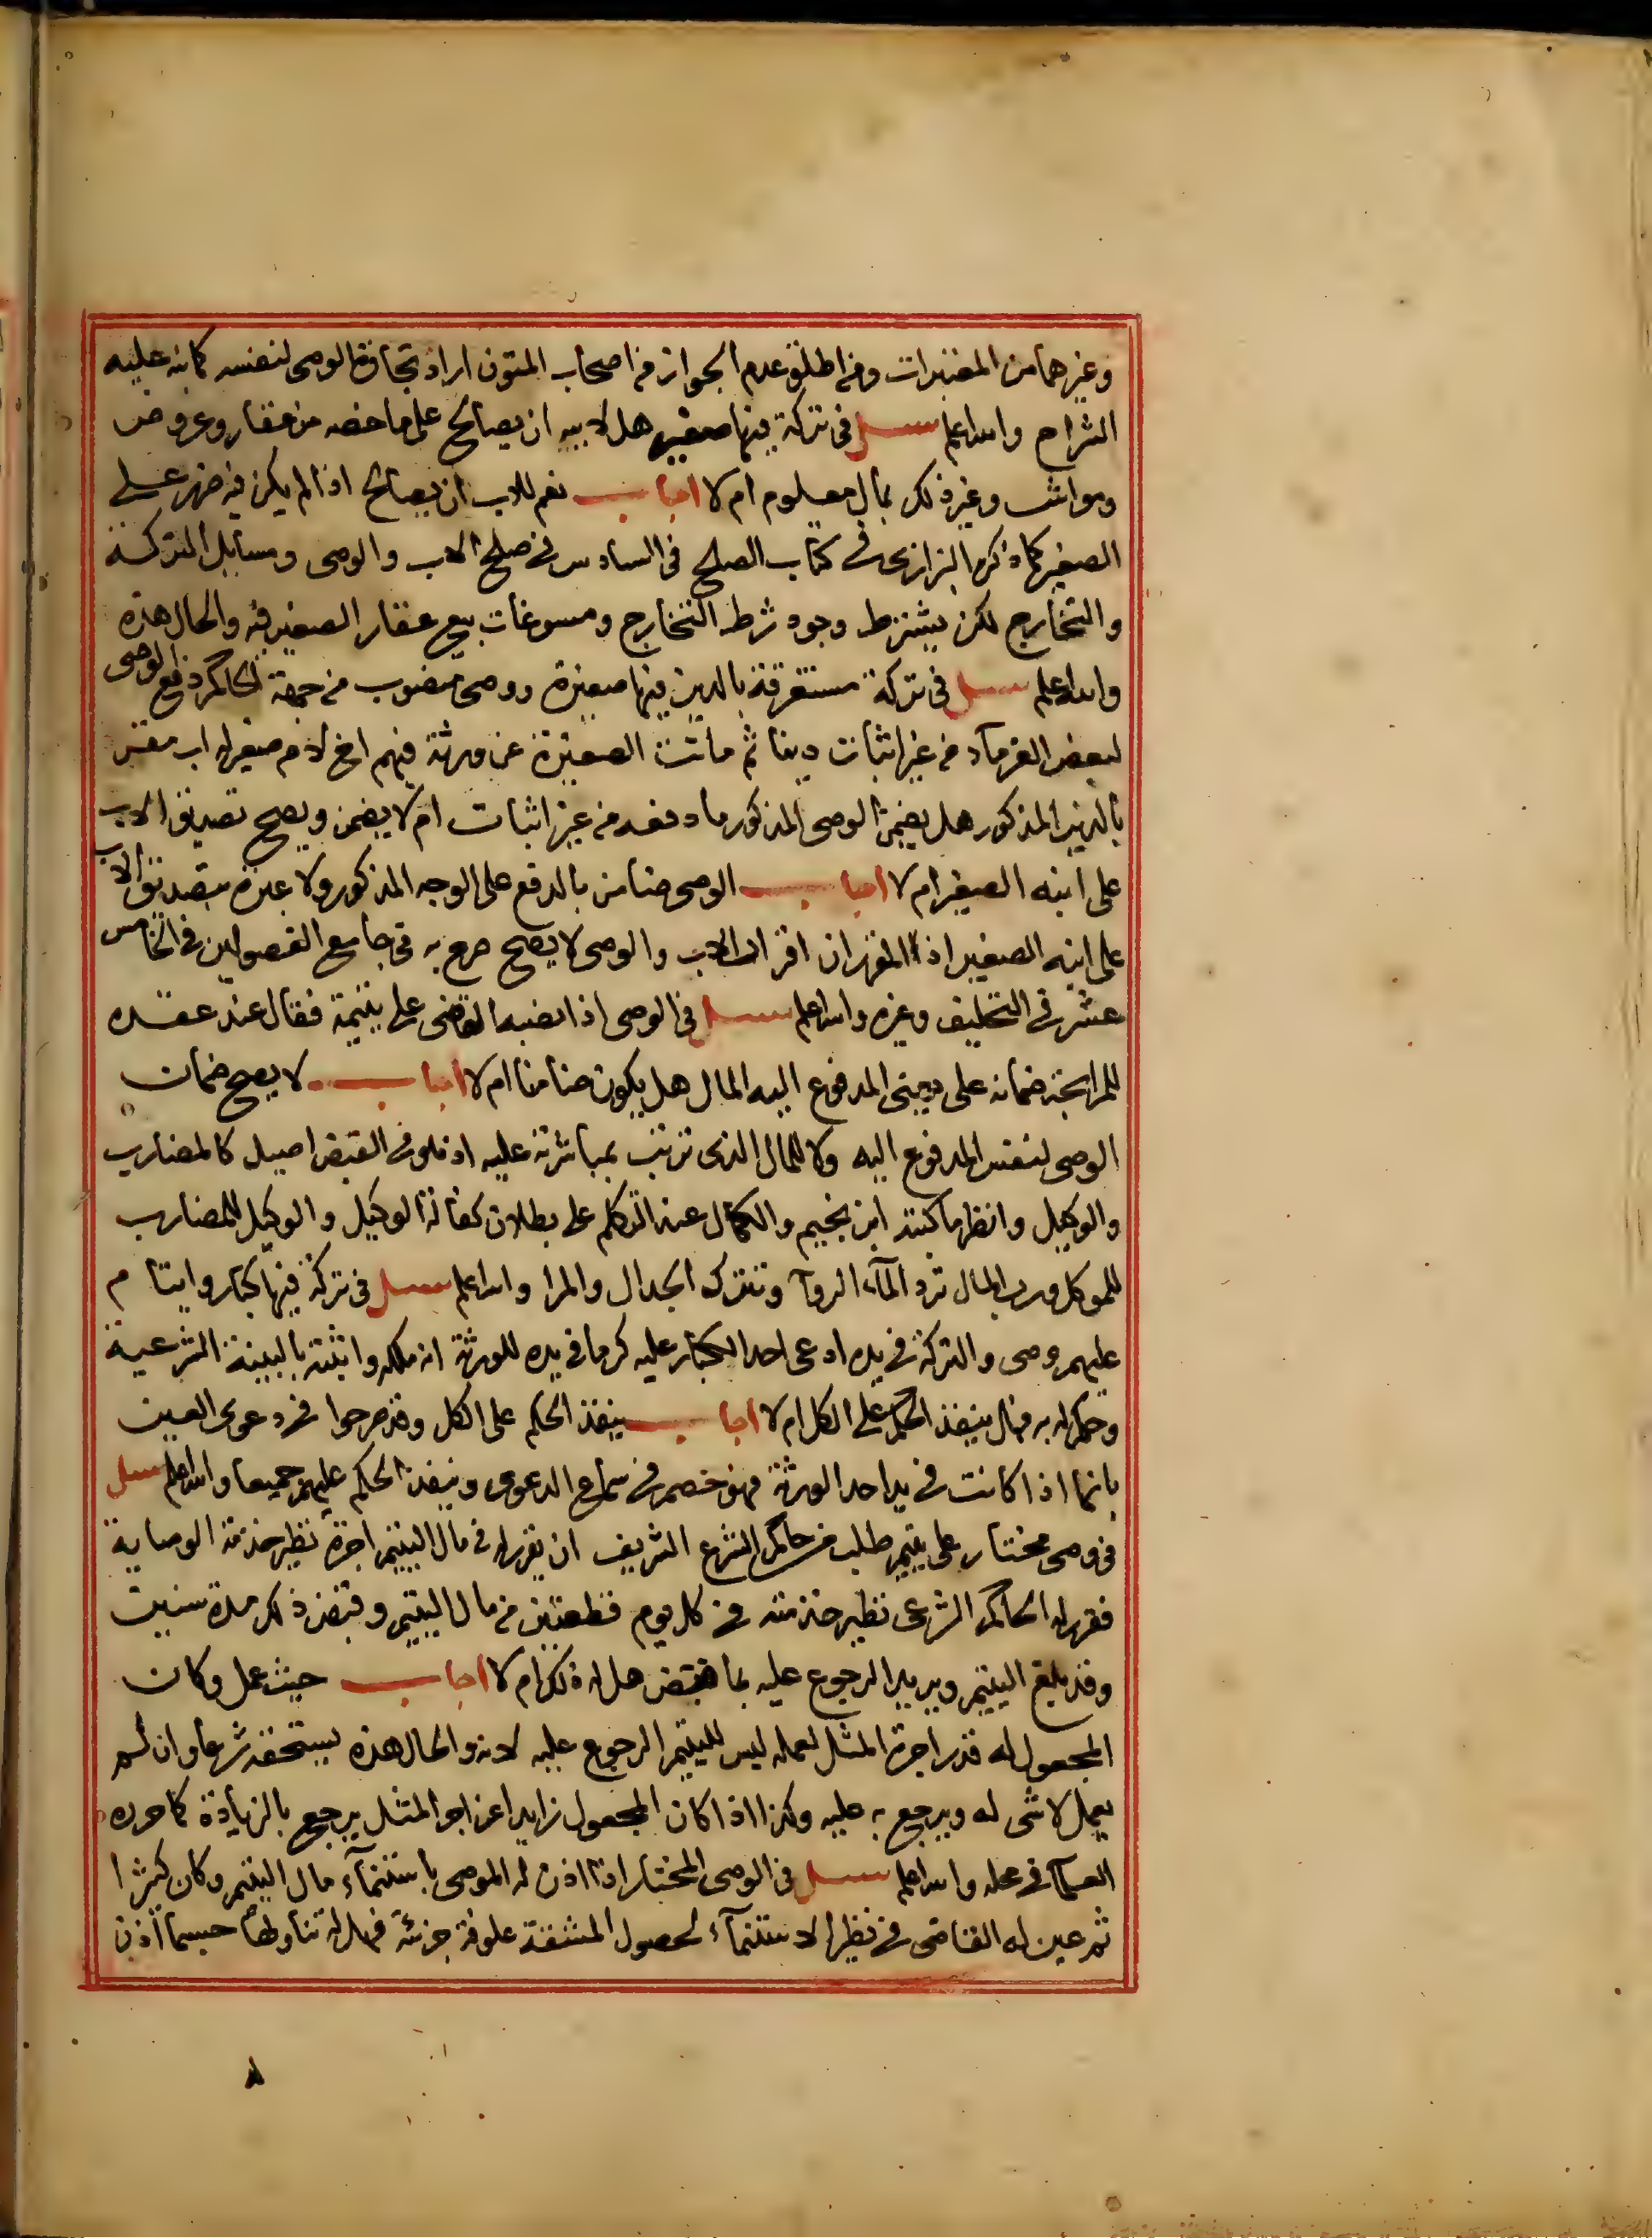 وغيرهما من المعتبرات ومن اطلق عدم الجواز من اصحاب المتون اراد تجارة الوصى لنفسه كما نبه عليه
الشراح والله اعلم سئل فى تركة فيها صغير هل لابيه ان يصالح على ما خصه من عقار وعروض
ومواشى وغير ذلك بمال معلوم ام لا اجاب نعم للاب ان يصالح اذا لم يكن فيه ضرر على
الصغير كما ذكره البزازى فى كتاب الصلح فى السادس فى صلح الاب والوصى ومسايل التركة
والتخارج لكن يشترط وجود شرط التخارج ومسوغات بيع عقار الصغير فيه والحال هذه
والله اعلم سئل فى تركة مستغرقة بالدين فيها صغيرة ووصى منصوب من جهة الحاكم دفع الوصى
لبعض الغرماء من غير اثبات دينا ثم ماتت الصغيرة عن ورثة فيهم اخ لام صغير له اب مقر
بالدين المذكور هل يضمن الوصى المذكور ما دفعه من غير اثبات ام لا يضمن ويصح تصديق الاب
على ابنه الصغير ام لا اجاب الوصى ضامن بالدفع على الوجه المذكور ولا عبرة بتصديق الاب
على ابنه الصغير اذ المقرر ان اقرار الاب والوصى لا يصح صرح به فى جامع الفصولين فى الخامس
عشر فى التحليف وغيره والله اعلم سئل فى الوصى اذا نصبه القاضى على يتيمة فقال عند عقده
للمرابحة ضمانه على ديني المدفوع اليه المال هل يكون ضامنا ام لا اجاب لا يصح ضمان
الوصى لنفس المدفوع اليه ولا للمال الذى ترتب بمباشرته عليه اذ هو فى القبض اصيل كالمضارب
والوكيل وانظر ما كتبه ابن نجيم والكمال عند التكلم على بطلان كفالة الوكيل والوكيل للمضارب
للموكل ورب المال ترد الماء الروآ وتترك الجدال والمرا والله اعلم سئل فى تركة فيها كبار وايتام
عليهم وصى والتركة فى يده ادعى احد الكبار عليه كرما فى يده للورثة انه ملكه واثبته بالبينة الشرعية
وحكم له به فهل ينفذ الحكم على الكل ام لا اجاب ينفذ الحكم على الكل وقد صرحوا فى دعوى العين
بانها اذا كانت فى يد احد الورثة فهو خصم فى سماع الدعوى وينفذ الحكم عليهم جميعا والله اعلم سئل
فى وصى مختار على يتيم طلب من حاكم الشرع الشريف ان يقرر له فى مال اليتيم اجرة نظير خدمة الوصاية
فقرر له الحاكم الشرعى نظير خدمته فى كل يوم قطعتين من مال اليتيم وقبض ذلك مدة سنين
وقد بلغ اليتيم ويريد الرجوع عليه بما قبض هل له ذلك ام لا اجاب حيث عمل وكان
المجعول له قدر اجرة المثل لعمله ليس لليتيم الرجوع عليه لانه والحال هذه يستحقه شرعا وان لم
يعمل لا شى له ويرجع به عليه وكذا اذا كان المجعول زايدا عن اجر المثل يرجع بالزيادة كما حرره
العلما فى محله والله اعلم سئل فى الوصى المختار اذا اذن له الموصى باستنماء مال اليتيم وكان كثيرا
ثم عين له القاضى فى نظير الاستنماء لحصول المشقة علوفة جزئية فهل له تناولها حسبما اذن